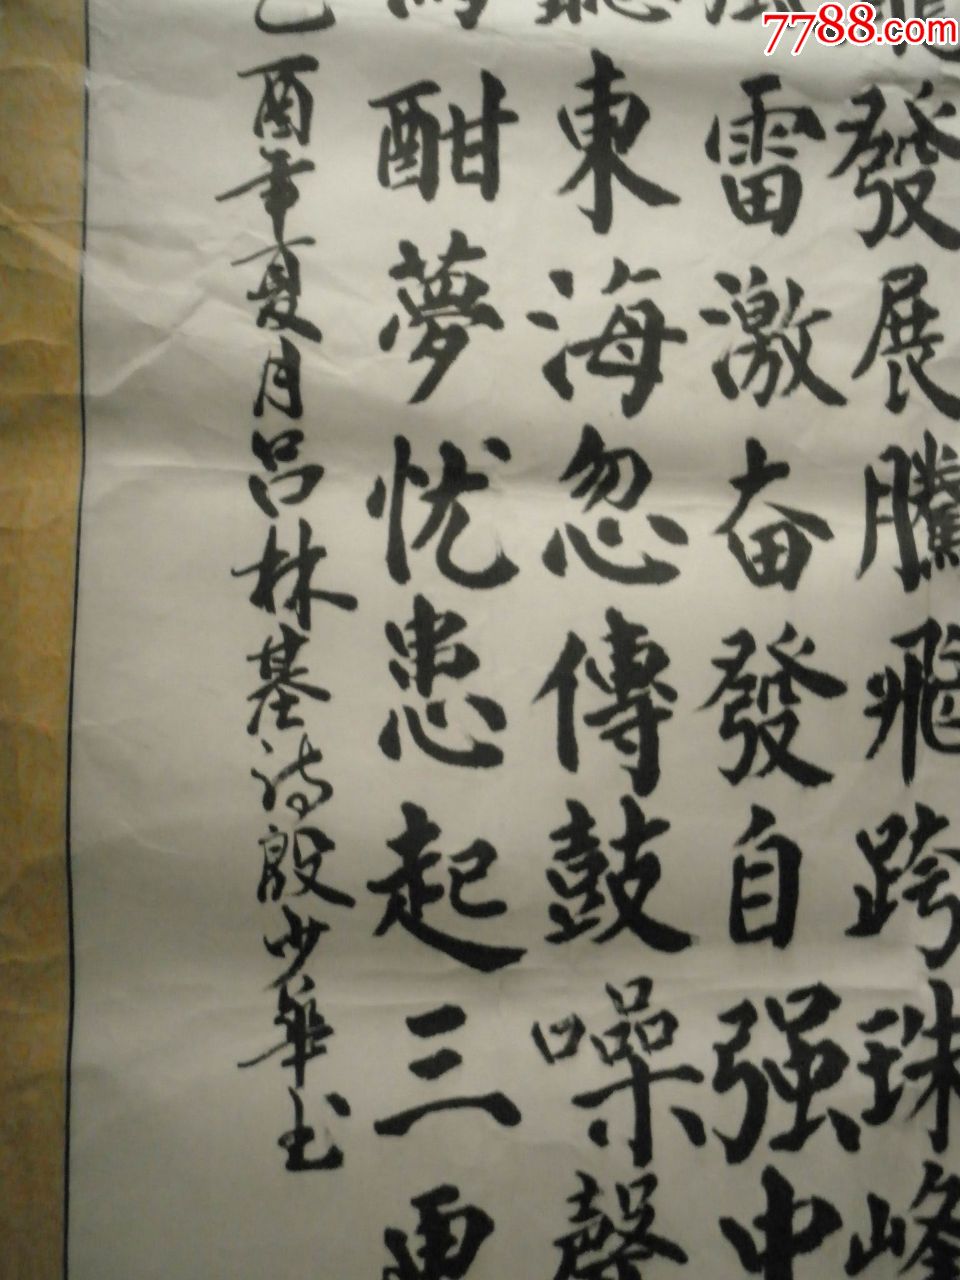 7788.com
發展騰飛跨珠峰
雷激奋發自强中
東海忽傳鼓噪聲
酣夢忧患起三更
乙酉年夏月吕林基诗殷少华书